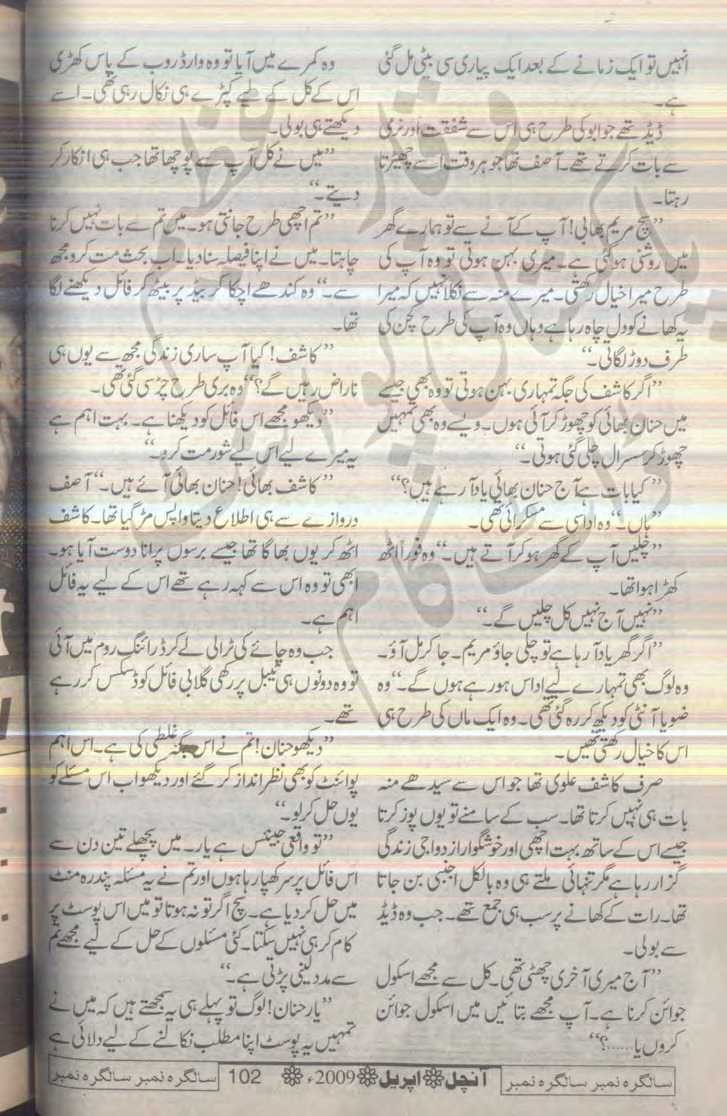 انہیں تو ایک زمانے کے بعد ایک پیاری سی بیٹی مل گئی
ہے۔
ڈیڈ تھے جو ابو کی طرح ہی اس سے شفقت اور نرمی
سے بات کرتے تھے۔ آصف تھا جو ہر وقت اسے چھیڑتا
رہتا۔
”سچ مریم بھابی! آپ کے آنے سے تو ہمارے گھر
میں روشنی ہوگئی ہے۔ میری بہن ہوتی تو وہ آپ کی
طرح میرا خیال رکھتی۔ میرے منہ سے نکلا نہیں کہ میرا
یہ کھانے کو دل چاہ رہا ہے وہاں وہ آپ کی طرح کچن کی
طرف دوڑ لگاتی۔“
”اگر کاشف کی جگہ تمہاری بہن ہوتی تو وہ بھی جیسے
میں حنان بھائی کو چھوڑ کر آئی ہوں۔ ویسے وہ بھی تمہیں
چھوڑ کر سسرال چلی گئی ہوتی۔“
”کیا بات ہے آج حنان بھائی یاد آ رہے ہیں؟“
”ہاں۔“ وہ اداسی سے مسکرائی تھی۔
”چلیں آپ کے گھر ہو کر آتے ہیں۔“ وہ فوراً اٹھ
کھڑا ہوا تھا۔
”نہیں آج نہیں کل چلیں گے۔“
”اگر گھر یاد آ رہا ہے تو چلی جاؤ مریم۔ جا کر مل آؤ۔
وہ لوگ بھی تمہارے لیے اداس ہو رہے ہوں گے۔“ وہ
ضویا آنٹی کو دیکھ کر رہ گئی تھی۔ وہ ایک ماں کی طرح ہی
اس کا خیال رکھتی تھیں۔
صرف کاشف علوی تھا جو اس سے سیدھے منہ
بات ہی نہیں کرتا تھا۔ سب کے سامنے تو یوں پوز کرتا
جیسے اس کے ساتھ بہت اچھی اور خوشگوار ازدواجی زندگی
گزار رہا ہے مگر تنہائی ملتے ہی وہ بالکل اجنبی بن جاتا
تھا۔ رات کے کھانے پر سب ہی جمع تھے۔ جب وہ ڈیڈ
سے بولی۔
”آج میری آخری چھٹی تھی۔ کل سے مجھے اسکول
جوائن کرنا ہے۔ آپ مجھے بتائیں میں اسکول جوائن
کروں یا......؟“
وہ کمرے میں آیا تو وہ وارڈ روب کے پاس کھڑی
اس کے کل کے لیے کپڑے ہی نکال رہی تھی۔ اسے
دیکھتے ہی بولی۔
”میں نے کل آپ سے پوچھا تھا جب ہی انکار کر
دیتے۔“
”تم اچھی طرح جانتی ہو۔ میں تم سے بات نہیں کرنا
چاہتا۔ میں نے اپنا فیصلہ سنا دیا۔ اب بحث مت کرو مجھ
سے۔“ وہ کندھے اچکا کر بیڈ پر بیٹھ کر فائل دیکھنے لگا
تھا۔
”کاشف! کیا آپ ساری زندگی مجھ سے یوں ہی
ناراض رہیں گے؟“ وہ بری طرح چڑ سی گئی تھی۔
”دیکھو مجھے اس فائل کو دیکھنا ہے۔ بہت اہم ہے
یہ میرے لیے اس لیے شور مت کرو۔“
”کاشف بھائی! حنان بھائی آئے ہیں۔“ آصف
دروازے سے ہی اطلاع دیتا واپس مڑ گیا تھا۔ کاشف
اٹھ کر یوں بھاگا تھا جیسے برسوں پرانا دوست آیا ہو۔
ابھی تو وہ اس سے کہہ رہے تھے اس کے لیے یہ فائل
اہم ہے۔
جب وہ چائے کی ٹرالی لے کر ڈرائنگ روم میں آئی
تو وہ دونوں ہی ٹیبل پر رکھی گلابی فائل کو ڈسکس کر رہے
تھے۔
”دیکھو حنان! تم نے اس جگہ غلطی کی ہے۔ اس اہم
پوائنٹ کو بھی نظر انداز کر گئے اور دیکھو اب اس مسئلے کو
یوں حل کر لو۔“
”تو واقعی جینئس ہے یار۔ میں پچھلے تین دن سے
اس فائل پر سر کھپا رہا ہوں اور تم نے یہ مسئلہ پندرہ منٹ
میں حل کر دیا ہے۔ سچ اگر تو نہ ہوتا تو میں اس پوسٹ پر
کام کر ہی نہیں سکتا۔ کئی مسئلوں کے حل کے لیے مجھے تم
سے مدد لینی پڑتی ہے۔“
”یار حنان! لوگ تو پہلے ہی یہ سمجھتے ہیں کہ میں نے
تمہیں یہ پوسٹ اپنا مطلب نکالنے کے لیے دلائی ہے
سالگرہ نمبر سالگرہ نمبر آنچل اپریل 2009ء 102 سالگرہ نمبر سالگرہ نمبر